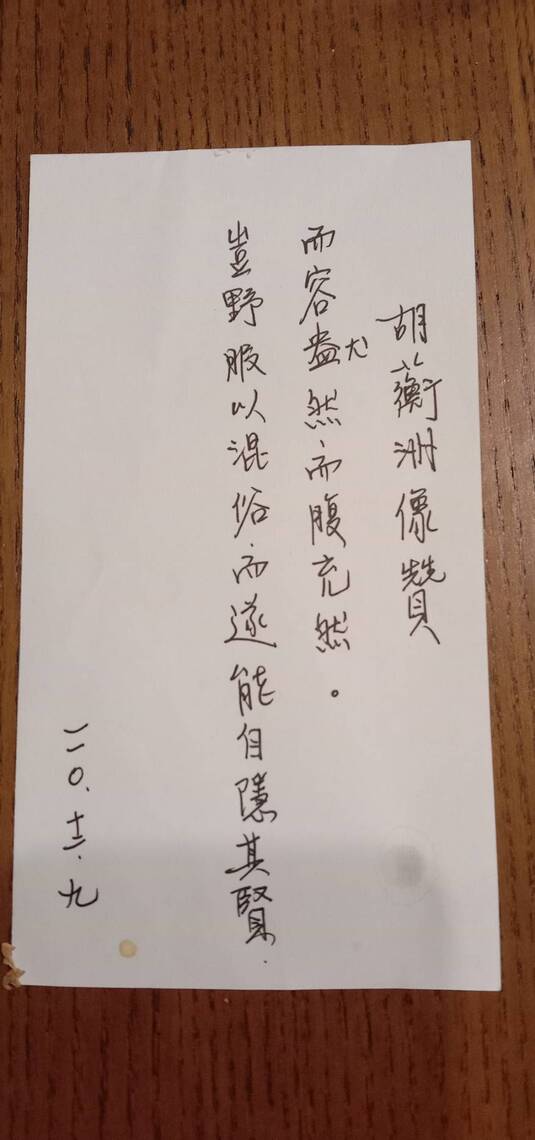 胡蘅洲像贊
而容盎然而腹充然。
豈野服以混俗.而遂能自隱其賢.
一一0.十二.九